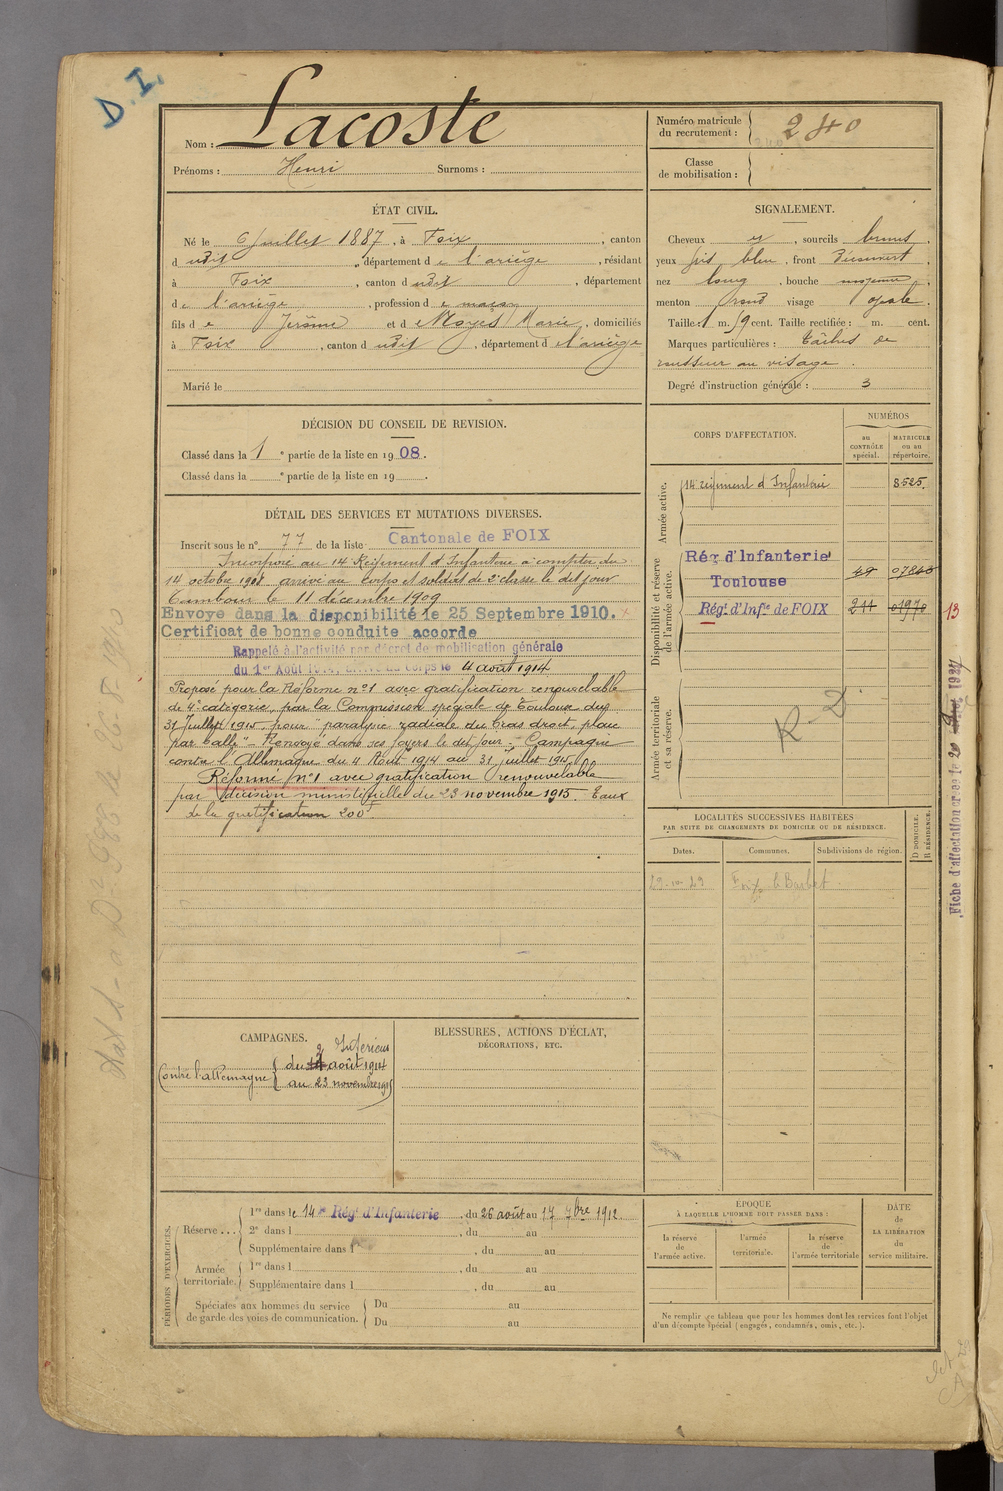 D. I.
Nom : Lacoste
Prénoms : Henri Surnoms :
Numéro matricule du recrutement : 240
Classe de mobilisation :
ÉTAT CIVIL.
Né le 6 Juillet 1887, à Foix, canton
d udit, département de l'ariège, résidant
à Foix, canton d udit, département
de l'ariège, profession de maçon
fils de Jérôme et d e Moyès Marie, domiciliés
à Foix, canton d udit, département d e l'ariège
Marié le
SIGNALEMENT.
Cheveux et, sourcils bruns,
yeux gris bleu, front Découvert,
nez long, bouche moyenne,
menton rond visage ovale.
Taille : 1 m. 59 cent. Taille rectifiée : m. cent.
Marques particulières : tâches de
rousseur au visage.
Degré d'instruction générale : 3
DÉCISION DU CONSEIL DE REVISION.
Classé dans la 1e partie de la liste en 1908.
Classé dans la e partie de la liste en 19 .
DÉTAIL DES SERVICES ET MUTATIONS DIVERSES.
Inscrit sous le n° 77 de la liste Cantonale de FOIX
Incorporé au 14 Régiment d'Infanterie à compter du
14 octobre 1908 arrivé au corps et soldat de 2e classe le dit jour
Tambour le 11 décembre 1909
Envoyé dans la disponibilité le 25 Septembre 1910.
Certificat de bonne conduite accordé
Rappelé à l'activité par décret de mobilisation générale
du 1er Août 1914, arrivé au corps le 4 août 1914
Proposé pour la Réforme n°1 avec gratification renouvelable
de 4e catégorie, par la Commission spéciale de Toulouse du
31 Juillet 1915, pour "paralysie radiale du bras droit, plaie
par balle" - Renvoyé dans ses foyers le dit jour, Campagne
contre l'Allemagne du 4 Août 1914 au 31 juillet 1915
Réformé n°1 avec gratification renouvelable
par décision ministérielle du 23 novembre 1915. Taux
de la gratification 200f.
CORPS D'AFFECTATION.
NUMÉROS
au CONTRÔLE spécial.
MATRICULE ou au répertoire.
Armée active.
14 régiment d'Infanterie 8525.
Disponibilité et réserve de l'armée active.
Rég. d'Infanterie
Toulouse
Rég.t d'Inf.ie de FOIX 211 01970
13
Armée territoriale et sa réserve.
R - D
Fiche d'affectation créée le 20 1927
LOCALITÉS SUCCESSIVES HABITÉES
PAR SUITE DE CHANGEMENTS DE DOMICILE OU DE RÉSIDENCE.
Dates. Communes. Subdivisions de région. D DOMICILE. R RÉSIDENCE.
Foix
CAMPAGNES.
Intérieur
Contre l'allemagne { du 2 août 1914
au 23 novembre 1915
BLESSURES, ACTIONS D'ÉCLAT,
DÉCORATIONS, ETC.
PÉRIODES D'EXERCICES.
Réserve ... 1re dans le 14e Rég.t d'Infanterie, du 26 août au 17 7bre 1912.
2e dans l , du au
Supplémentaire dans l , du au
Armée territoriale. 1re dans l , du au
Supplémentaire dans l , du au
Spéciales aux hommes du service
de garde des voies de communication. Du au
Du au
ÉPOQUE
À LAQUELLE L'HOMME DOIT PASSER DANS :
la réserve de l'armée active.
l'armée territoriale.
la réserve de l'armée territoriale
DATE de LA LIBÉRATION du service militaire.
Ne remplir ce tableau que pour les hommes dont les services font l'objet
d'un décompte spécial (engagés, condamnés, omis, etc.).